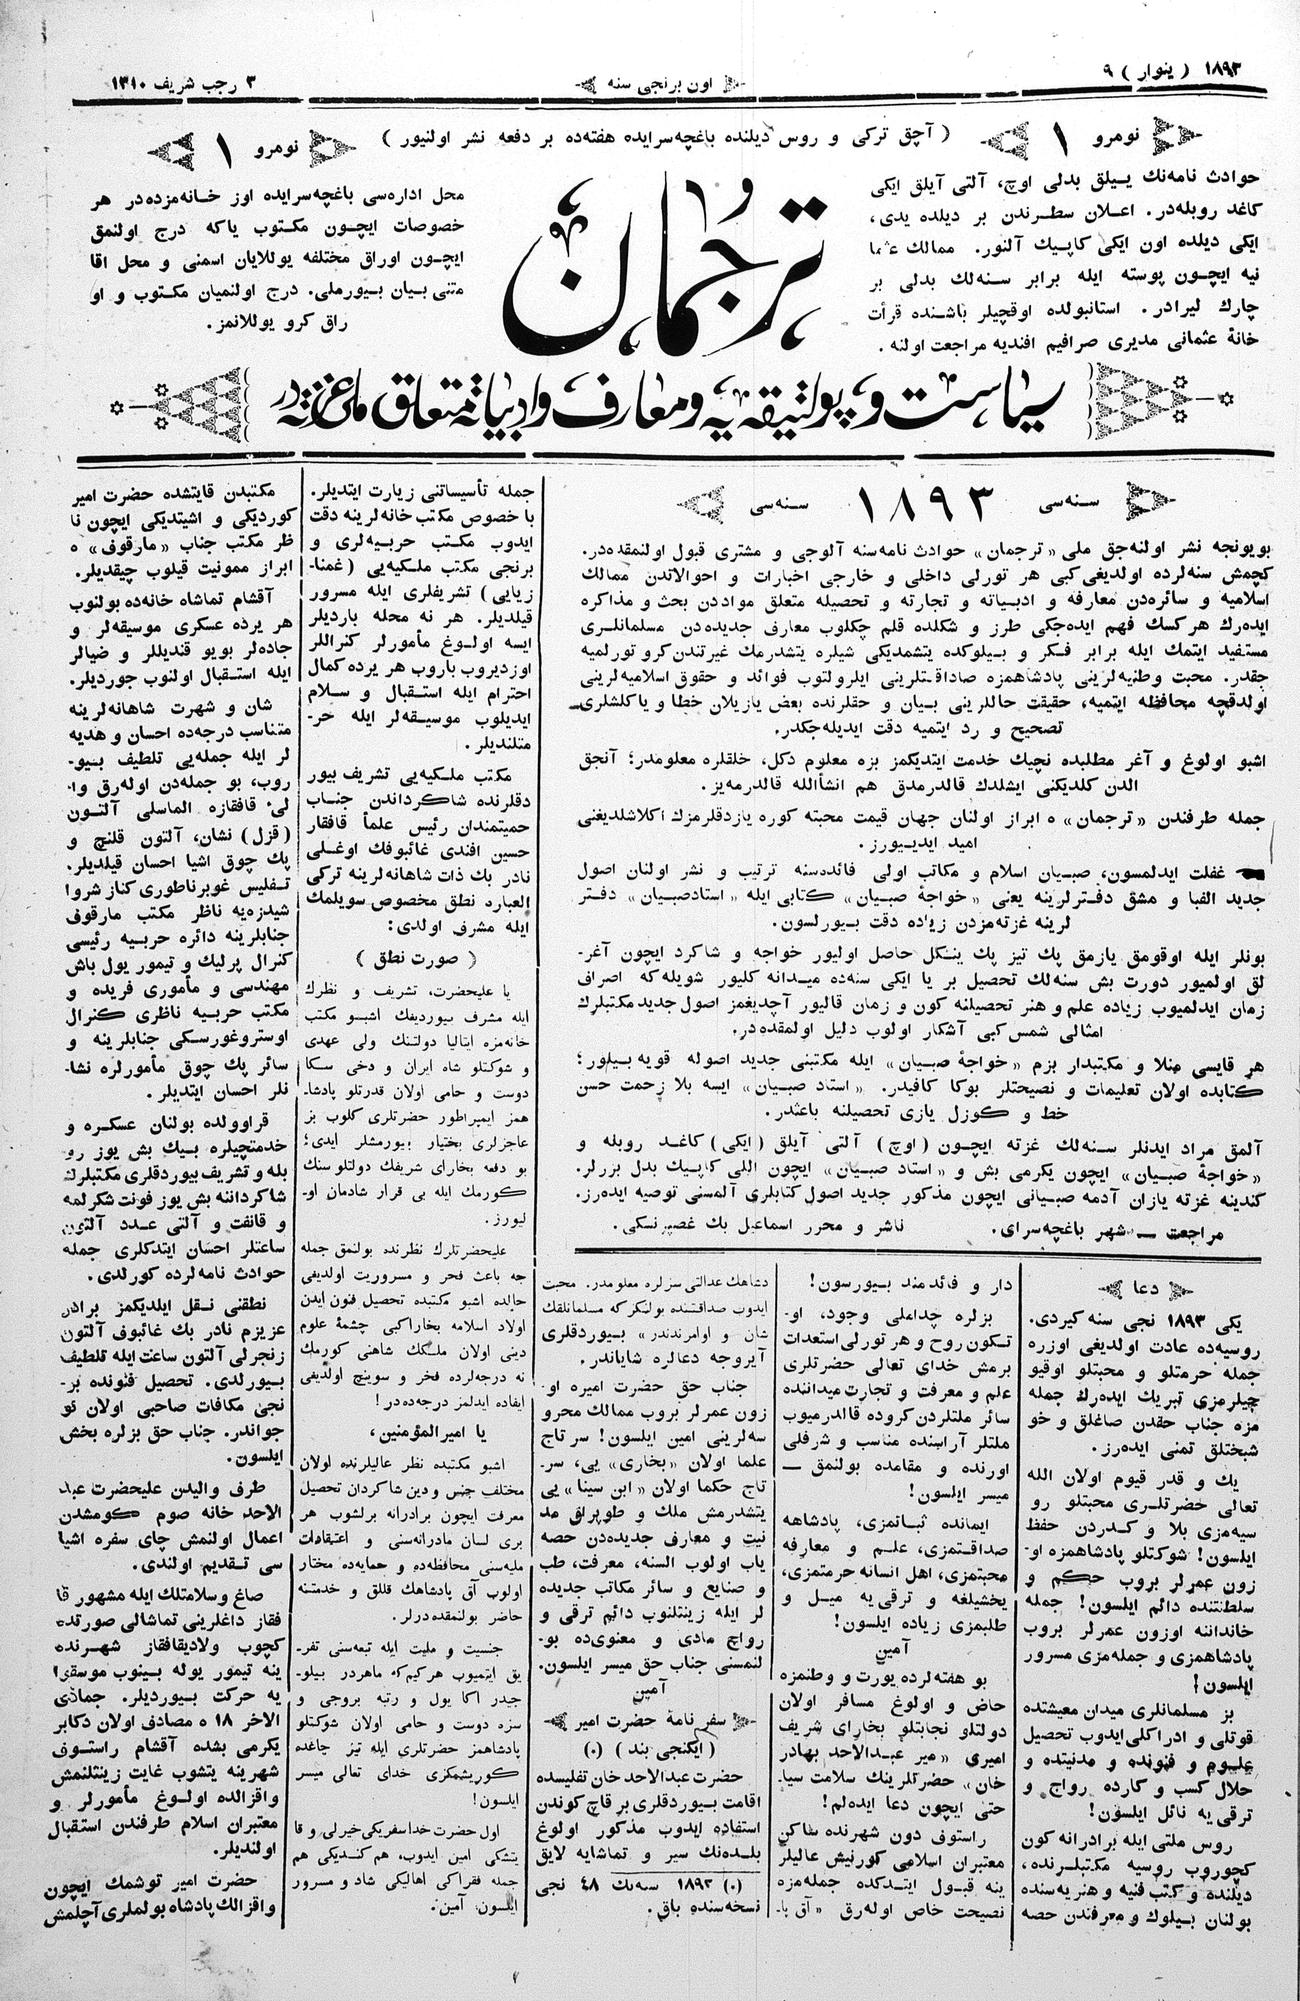 ۱۸۹۳ ( ینوار ) ۹
اون برنجی سنه
۳ رجب شریف ۱۳۱۰
نومرو ۱
( آچق ترکی و روس دیلنده باغچه‌سرایده هفته‌ده بر دفعه نشر اولنیور )
نومرو ۱
حوادث نامه‌نك ییلق بدلی اوچ، آلتی آیلق ایکی
کاغد روبله‌در. اعلان سطرندن بر دیلده یدی،
ایکی دیلده اون ایکی کاپیك آلنور. ممالك عثما
نیه ایچون پوسته ایله برابر سنه‌لك بدلی بر
چارك لیرادر. استانبولده اوقچیلر باشنده قرأت
خانۀ عثمانی مدیری صرافیم افندیه مراجعت اولنه.
ترجمان
محل اداره‌سی باغچه‌سرایده اوز خانه‌مزده‌در هر
خصوصات ایچون مکتوب یاکه درج اولنمق
ایچون اوراق مختلفه یوللایان اسمنی و محل اقا
متنی بیان بیورملی. درج اولنمیان مکتوب و او
راق کرو یوللانمز.
سیاست و پولتیقه‌یه و معارف و ادبیاته متعلق ملی غزته‌در
۱۸۹۳ سنه‌سی سنه‌سی
بویونجه نشر اولنه‌جق ملی «ترجمان» حوادث نامه‌سنه آلوجی و مشتری قبول اولنمقده‌در.
کچمش سنه‌لرده اولدیغی کبی هر تورلی داخلی و خارجی اخبارات و احوالاتدن ممالك
اسلامیه و سائره‌دن معارفه و ادبیاته و تجارته و تحصیله متعلق مواددن بحث و مذاکره
ایده‌رك هرکسك فهم ایده‌جکی طرز و شکلده قلم چکلوب معارف جدیده‌دن مسلمانلری
مستفید ایتمك ایله برابر فکر و بیلوکده یتشمدیکی شیلره یتشدرمك غیرتندن کرو تورلمیه
جقدر. محبت وطنیه‌لرینی پادشاهمزه صاداقتلرینی ایلرولتوب فوائد و حقوق اسلامیه‌لرینی
اولدقچه محافظه ایتمیه، حقیقت حاللرینی بیان و حقلرنده بعض یازیلان خطا و یاکلشلری
تصحیح و رد ایتمیه دقت ایدیله‌جکدر.
اشبو اولوغ و آغر مطلبده نچیك خدمت ایتدیکمز بزه معلوم دکل، خلقلره معلومدر؛ آنجق
الدن کلدیکنی ایشلدك قالدرمدق هم انشأالله قالدرمه‌یز.
جمله طرفندن «ترجمان» ه ابراز اولنان جهان قیمت محبته کوره یازدقلرمزك اکلاشلدیغنی
امید ایدیورز.
غفلت ایدلمسون، صبیان اسلام و مکاتب اولی فائده‌سنه ترتیب و نشر اولنان اصول
جدید الفبا و مشق دفترلرینه یعنی «خواجۀ صبیان» کتابی ایله «استادصبیان» دفتر
لرینه غزته‌مزدن زیاده دقت بیورلسون.
بونلر ایله اوقومق یازمق پك تیز پك ینکل حاصل اولیور خواجه و شاکرد ایچون آغر-
لق اولمیور دورت بش سنه‌لك تحصیل بر یا ایکی سنه‌ده میدانه کلیور شویله‌که اصراف
زمان ایدلمیوب زیاده علم و هنر تحصیلنه کون و زمان قالیور آچدیغمز اصول جدید مکتبلرك
امثالی شمس کبی آشکار اولوب دلیل اولمقده‌در.
هر قایسی منلا و مکتبدار بزم «خواجۀ صبیان» ایله مکتبنی جدید اصوله قویه بیلور؛
کتابده اولان تعلیمات و نصیحتلر بوکا کافیدر. «استاد صبیان» ایسه بلا زحمت حسن
خط و کوزل یازی تحصیلنه باعثدر.
آلمق مراد ایدنلر سنه‌لك غزته ایچون (اوچ) آلتی آیلق (ایکی) کاغد روبله و
«خواجۀ صبیان» ایچون یکرمی بش و «استاد صبیان» ایچون اللی کاپیك بدل بررلر.
کندینه غزته یازان آدمه صبیانی ایچون مذکور جدید اصول کتابلری آلمسنی توصیه ایده‌رز.
مراجعت — شهر باغچه‌سرای. ناشر و محرر اسماعیل بك غصپرنسکی.
دعا
یکی ۱۸۹۳ نجی سنه کیردی.
روسیه‌ده عادت اولدیغی اوزره
جمله حرمتلو و محبتلو اوقیو
چیلرمزی تبریك ایده‌رك جمله
مزه جناب حقدن صاغلق و خو
شبختلق تمنی ایده‌رز.
یك و قدر قیوم اولان الله
تعالی حضرتلری محبتلو رو
سیه‌مزی بلا و کدردن حفظ
ایلسون! شوکتلو پادشاهمزه او-
زون عمرلر بروب حکم و
سلطنتنده دائم ایلسون! جمله
خانداننه اوزون عمرلر بروب
پادشاهمزی و جمله‌مزی مسرور
ایلسون!
بز مسلمانلری میدان معیشتده
قوتلی و ادراکلی ایدوب تحصیل
علوم و فنونده و مدنیتده و
حلال کسب و کارده رواج و
ترقی یه نائل ایلسون!
روس ملتی ایله برادرانه کون
کچوروب روسیه مکتبلرنده،
دیلنده و کتب فنیه و هنریه‌سنده
بولنان بیلوك و معرفندن حصه
دار و فائدمند بیورسون!
بزلره چداملی وجود، او-
تکون روح و هر تورلی استعدات
برمش خدای تعالی حضرتلری
علم و معرفت و تجارت میداننده
سائر ملتلردن کروده قالدرمیوب
ملتلر آراسنده مناسب و شرفلی
اورنده و مقامده بولنمق —
میسر ایلسون!
ایمانده ثباتمزی، پادشاهه
صداقتمزی، علم و معارفه
محبتمزی، اهل انسانه حرمتمزی،
یخشیلغه و ترقی یه میل و
طلبمزی زیاده ایلسون!
آمین
بو هفته‌لرده یورت و وطنمزه
حاض و اولوغ مسافر اولان
دولتلو نجابتلو بخارای شریف
امیری «میر عبدالاحد بهادر
خان» حضرتلرینك سلامت سیا-
حتی ایچون دعا ایده‌لم!
راستوف دون شهرنده ساکن
معتبران اسلامی کورنیش عالیلر
ینه قبول ایتدکده جمله‌مزه
نصیحت خاص اوله‌رق «آق پا-
دعاهك عدالتی سزلره معلومدر. محبت
ایدوب صداقتنده بولنکز که مسلمانلقك
شان و اوامرندندر» بیوردقلری
آیروجه دعالره شایاندر.
جناب حق حضرت امیره او-
زون عمرلر بروب ممالك محرو
سه‌لرینی امین ایلسون! سر تاج
علما اولان «بخاری» یی، سر-
تاج حکما اولان «ابن سینا» یی
یتشدرمش ملك و طوپراق مد
نیت و معارف جدیده‌دن حصه
یاب اولوب السنه، معرفت، طب
و صنایع و سائر مکاتب جدیده
لر ایله زینتلنوب دائم ترقی و
رواج مادی و معنوی‌ده بو-
لنمسنی جناب حق میسر ایلسون.
آمین
سفر نامۀ حضرت امیر
( ایکنجی بند ) (۰)
حضرت عبدالاحد خان تفلیسده
اقامت بیوردقلری بر قاچ کوندن
استفاده ایدوب مذکور اولوغ
بلده‌نك سیر و تماشایه لایق
(۰) ۱۸۹۳ سنه‌نك ۴۸ نجی
نسخه‌سنده باق.
جمله تأسیساتنی زیارت ایتدیلر.
با خصوص مکتب خانه‌لرینه دقت
ایدوب مکتب حربیه‌لری و
برنجی مکتب ملکیه‌یی (غمنا-
زیایی) تشریفلری ایله مسرور
قیلدیلر. هر نه محله باردیلر
ایسه اولوغ مأمورلر کنراللر
اوزدیروب باروب هر یرده کمال
احترام ایله استقبال و سلام
ایدیلوب موسیقه‌لر ایله حر-
متلندیلر.
مکتب ملکیه‌یی تشریف بیور
دقلرنده شاکرداندن جناب
حمیتمندان رئیس علمأ قافقار
حسین افندی غائبوفك اوغلی
نادر بك ذات شاهانه‌لرینه ترکی
العباره نطق مخصوص سویلمك
ایله مشرف اولدی:
( صورت نطق )
یا علیحضرت، تشریف و نظرك
ایله مشرف بیوردیغك اشبو مکتب
خانه‌مزه ایتالیا دولتنك ولی عهدی
و شوکتلو شاه ایران و دخی سکا
دوست و حامی اولان قدرتلو پادشا-
همز ایمپراطور حضرتلری کلوب بز
عاجزلری بختیار بیورمشلر ایدی؛
بو دفعه بخارای شریفك دولتلوسنك
کورمك ایله بی قرار شادمان او-
لیورز.
علیحضرتلرك نظرنده بولنمق جمله
جه باعث فخر و مسروریت اولدیغی
حالده اشبو مکتبده تحصیل فنون ایدن
اولاد اسلامه بخارا کبی چشمۀ علوم
دینی اولان ملکك شاهنی کورمك
نه درجه‌لرده فخر و سوینچ اولدیغی
ایفاده ایدلمز درجه‌ده‌در!
یا امیرالمؤمنین،
اشبو مکتبده نظر عالیلرنده اولان
مختلف جنس و دین شاکردان تحصیل
معرفت ایچون برادرانه برلشوب هر
بری لسان مادرانه‌سنی و اعتقادات
ملیه‌سنی محافظه‌ده و حمایه‌ده مختار
اولوب آق پادشاهك قللق و خدمتنه
حاضر بولنمقده‌درلر.
جنسیت و ملیت ایله تبعه‌سنی تفر-
یق ایتمیوب هرکیم که ماهردر بیلو-
جیدر اکا یول و رتبه بروجی و
سزه دوست و حامی اولان شوکتلو
پادشاهمز حضرتلری ایله تیز چاغده
کوریشمکزی خدای تعالی میسر
ایلسون!
اول حضرت خدا سفریکی خیرلی و قا
یتشکی امین ایدوب، هم کندیکی هم
جمله فقراکی اهالیکی شاد و مسرور
ایلسون، آمین.
مکتبدن قایتشده حضرت امیر
کوردیکی و اشیتدیکی ایچون نا
ظر مکتب جناب «مارقوف» ه
ابراز ممونیت قیلوب چیقدیلر.
آقشام تماشاه خانه‌ده بولنوب
هر یرده عسکری موسیقه‌لر و
جاده‌لر بویو قندیللر و ضیالر
ایله استقبال اولنوب جوردیلر.
شان و شهرت شاهانه‌لرینه
متناسب درجه‌ده احسان و هدیه
لر ایله جمله‌یی تلطیف بیو-
روب، بو جمله‌دن اوله‌رق وا-
لیء قافقازه الماسلی آلتون
(قزل) نشان، آلتون قلنچ و
پك چوق اشیا احسان قیلدیلر.
تفلیس غوبرناطوری کناز شروا
شیدزه‌یه ناظر مکتب مارقوف
جنابلرینه دائره حربیه رئیسی
کنرال پرلیك و تیمور یول باش
مهندسی و مأموری فریده و
مکتب حربیه ناظری کنرال
اوستروغورسکی جنابلرینه و
سائر پك چوق مأمورلره نشا-
نلر احسان ایتدیلر.
قراوولده بولنان عسکره و
خدمتچیلره بیك بش یوز رو
بله و تشریف بیوردقلری مکتبلرك
شاکرداننه بش یوز فونت شکرلمه
و قانفت و آلتی عدد آلتون
ساعتلر احسان ایتدکلری جمله
حوادث نامه‌لرده کورلدی.
نطقنی نقل ایلدیکمز برادر
عزیزم نادر بك غائبوف آلتون
زنجرلی آلتون ساعت ایله تلطیف
بیورلدی. تحصیل فنونده بر-
نجی مکافات صاحبی اولان بو
جواندر. جناب حق بزلره بخش
ایلسون.
طرف والیدن علیحضرت عبد
الاحد خانه صوم کومشدن
اعمال اولنمش چای سفره اشیا
سی تقدیم اولندی.
صاغ و سلامتلك ایله مشهور قا
فقاز داغلرینی تماشالی صورتده
کچوب ولادیقافقاز شهرنده
ینه تیمور یوله بینوب موسقوا
یه حرکت بیوردیلر. جماذی
الاخر ۱۸ ه مصادف اولان دکابر
یکرمی بشده آقشام راستوف
شهرینه یتشوب غایت زینتلنمش
واقزالده اولوغ مأمورلر و
معتبران اسلام طرفندن استقبال
اولندیلر.
حضرت امیر توشمك ایچون
واقزالك پادشاه بولملری آچلمش